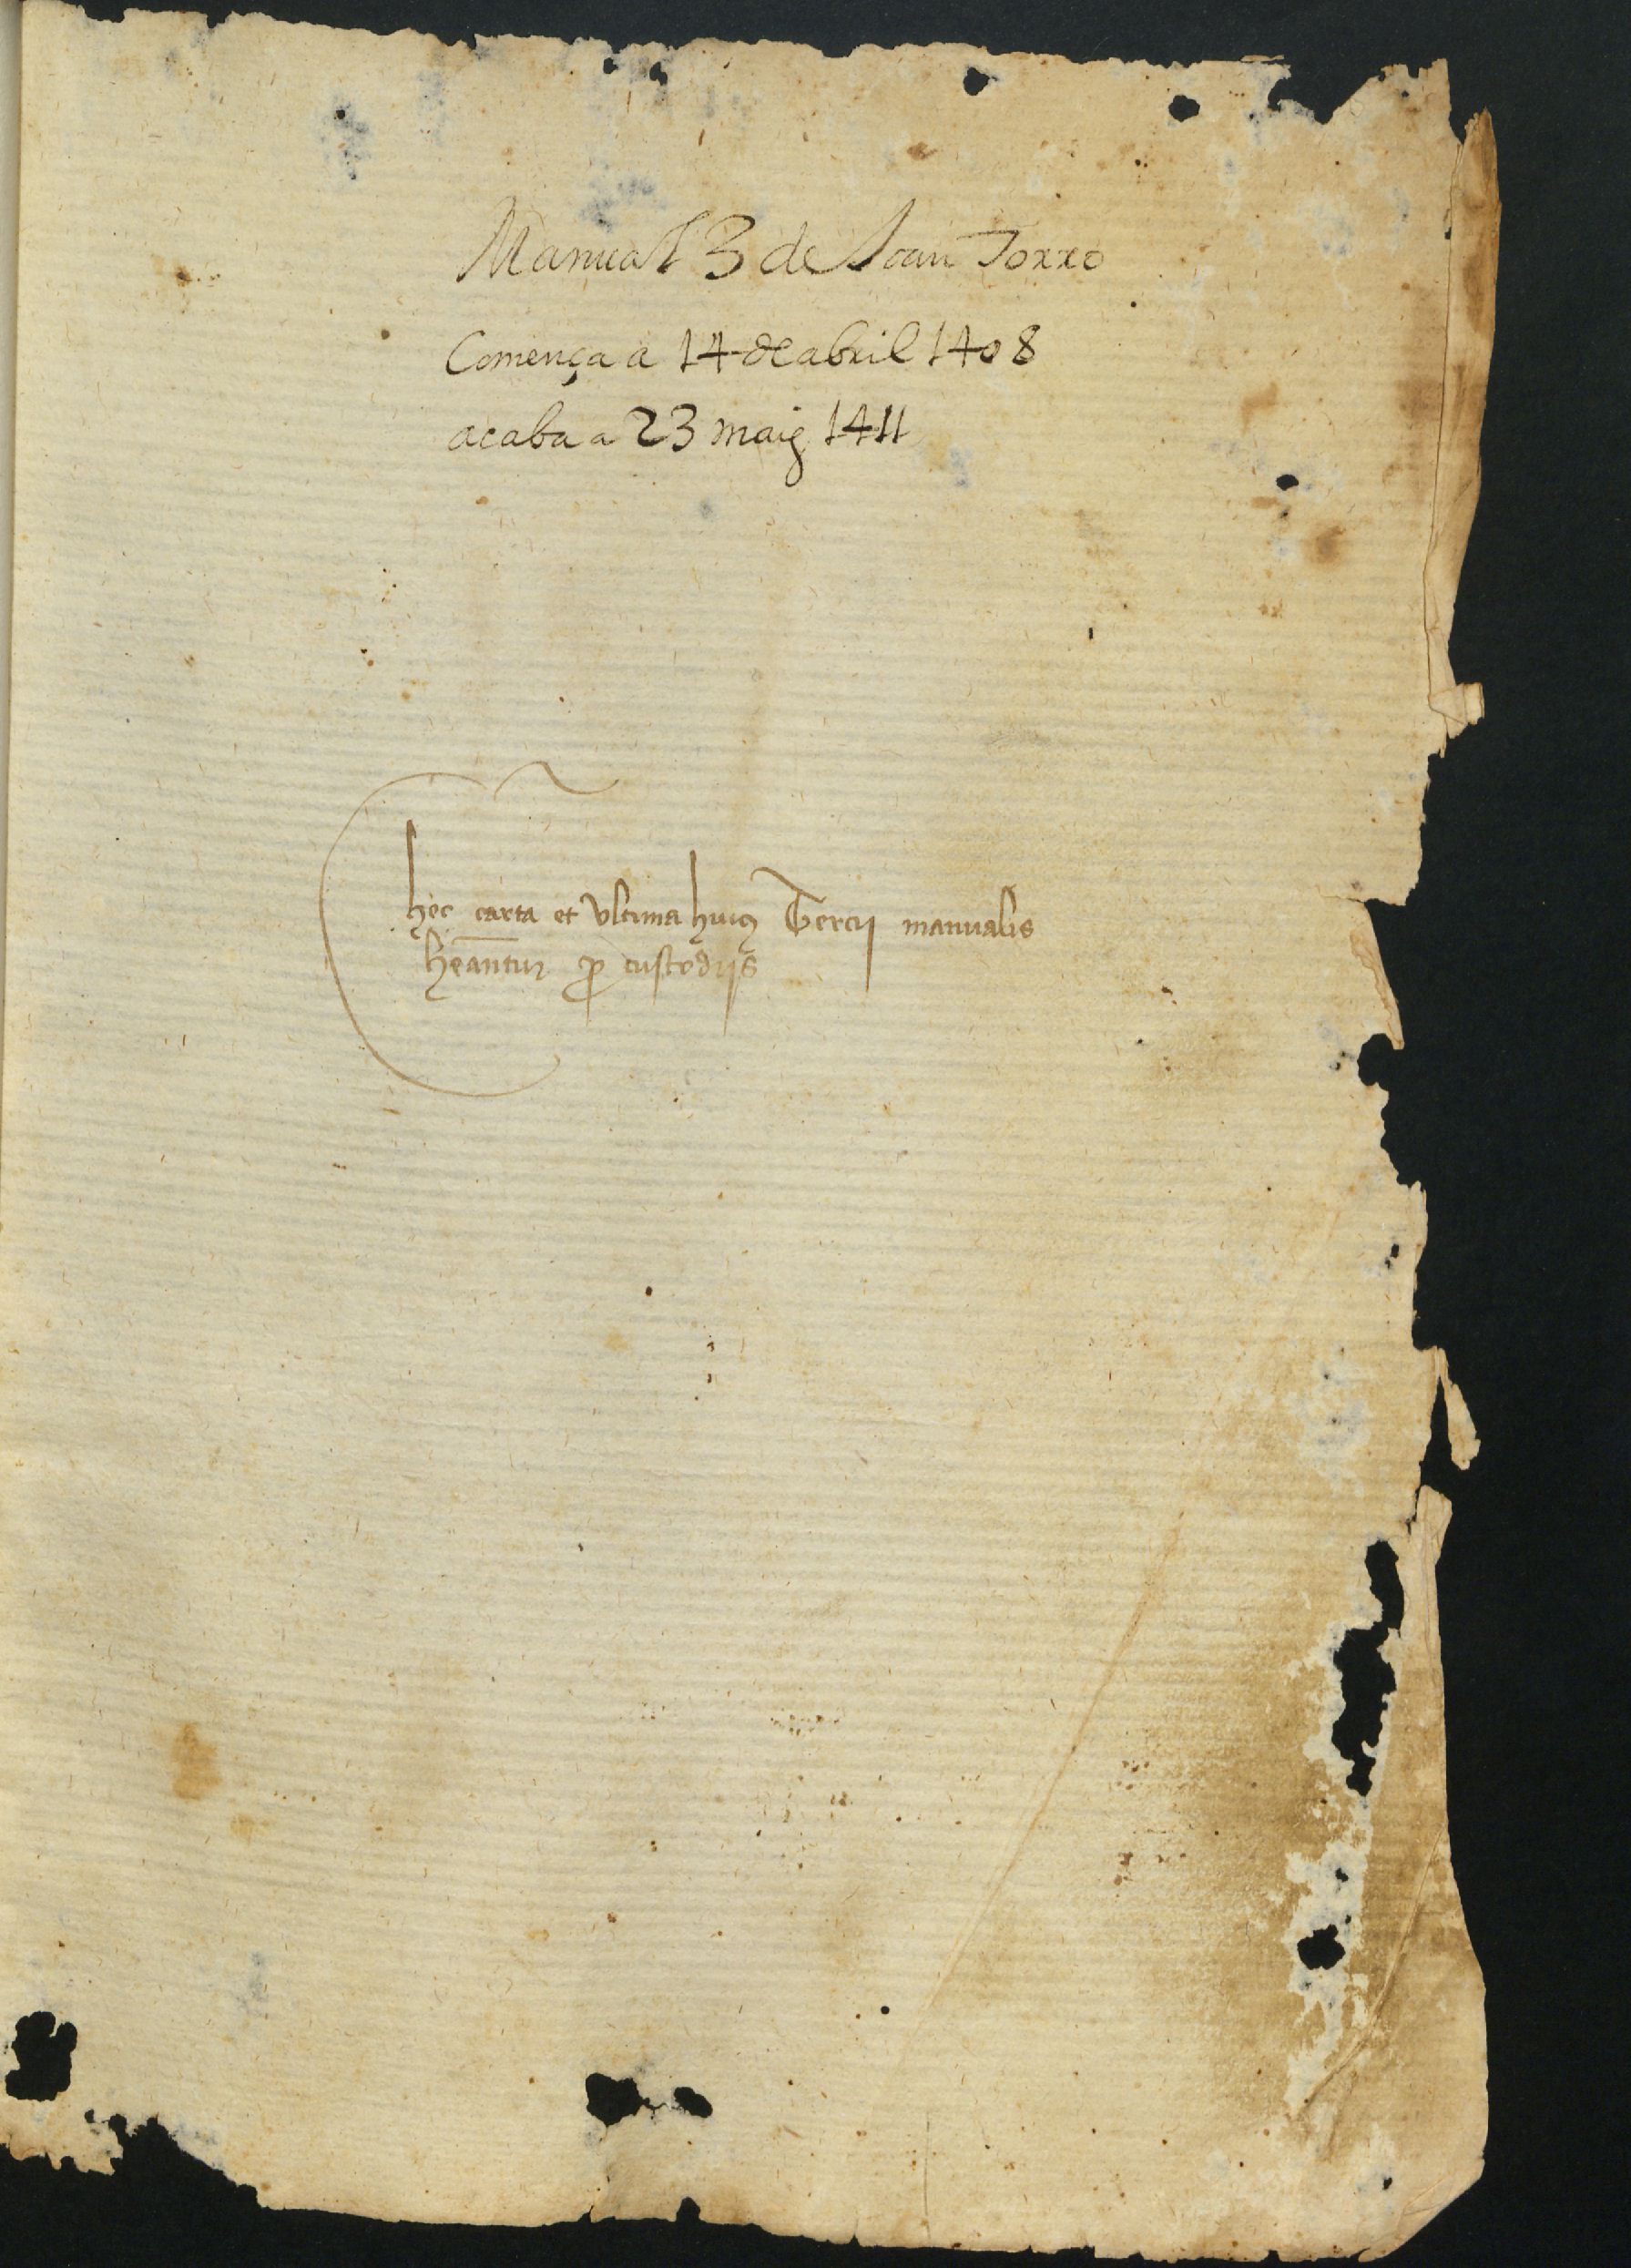 Manual 3 de Joan Torro
Comença a 14 de abril 1408
acaba a 23 maig 1411
hęc carta et vltima huiꝰ Tercij manualis
hęantur ꝓ custodijs